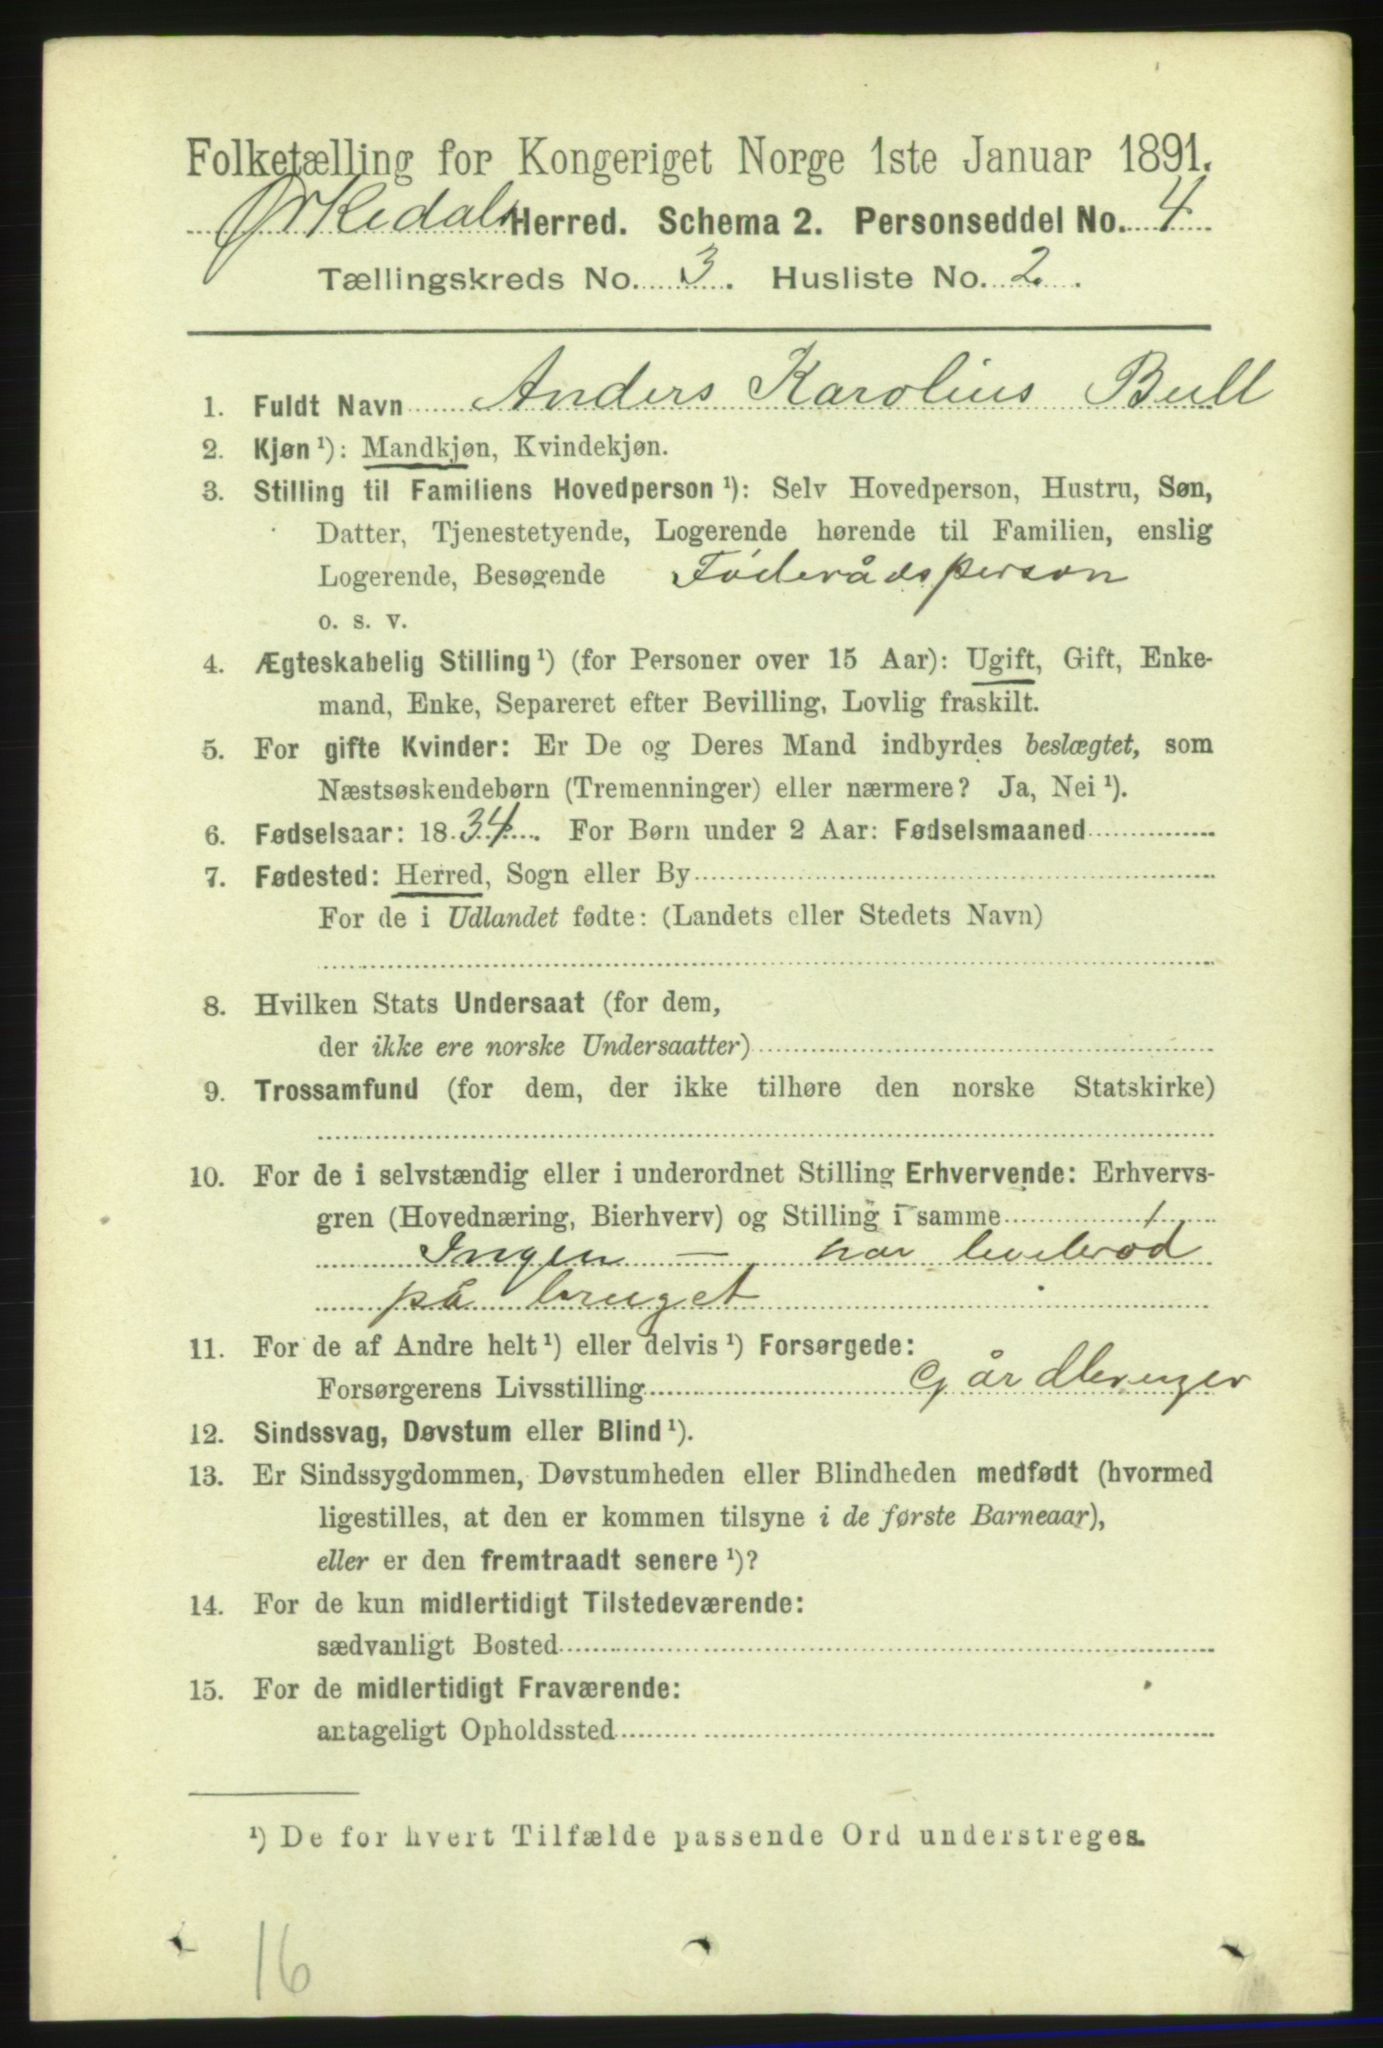 Folketælling for Kongeriget Norge 1ste Januar 1891.
Ørkedals Herred. Schema 2. Personseddel No. 4
Tællingskreds No. 3. Husliste No. 2.
1. Fuldt Navn Anders Karolius Bull
2. Kjøn ¹): Mandkjøn, Kvindekjøn.
3. Stilling til Familiens Hovedperson ¹): Selv Hovedperson, Hustru, Søn,
Datter, Tjenestetyende, Logerende hørende til Familien, enslig
Logerende, Besøgende Föderådsperson
o. s. v.
4. Ægteskabelig Stilling ¹) (for Personer over 15 Aar): Ugift, Gift, Enke-
mand, Enke, Separeret efter Bevilling, Lovlig fraskilt.
5. For gifte Kvinder: Er De og Deres Mand indbyrdes beslægtet, som
Næstsøskendebørn (Tremenninger) eller nærmere? Ja, Nei ¹).
6. Fødselsaar: 1834. For Børn under 2 Aar: Fødselsmaaned
7. Fødested: Herred, Sogn eller By
For de i Udlandet fødte: (Landets eller Stedets Navn)
8. Hvilken Stats Undersaat (for dem,
der ikke ere norske Undersaatter)
9. Trossamfund (for dem, der ikke tilhøre den norske Statskirke)
10. For de i selvstændig eller i underordnet Stilling Erhvervende: Erhvervs-
gren (Hovednæring, Bierhverv) og Stilling i samme
Ingen — har levebrød
på bruget
11. For de af Andre helt ¹) eller delvis ¹) Forsørgede:
Forsørgerens Livsstilling Gårdbruger
12. Sindssvag, Døvstum eller Blind ¹).
13. Er Sindssygdommen, Døvstumheden eller Blindheden medfødt (hvormed
ligestilles, at den er kommen tilsyne i de første Barneaar),
eller er den fremtraadt senere ¹)?
14. For de kun midlertidigt Tilstedeværende:
sædvanligt Bosted
15. For de midlertidigt Fraværende:
antageligt Opholdssted
¹) De for hvert Tilfælde passende Ord understreges.
16